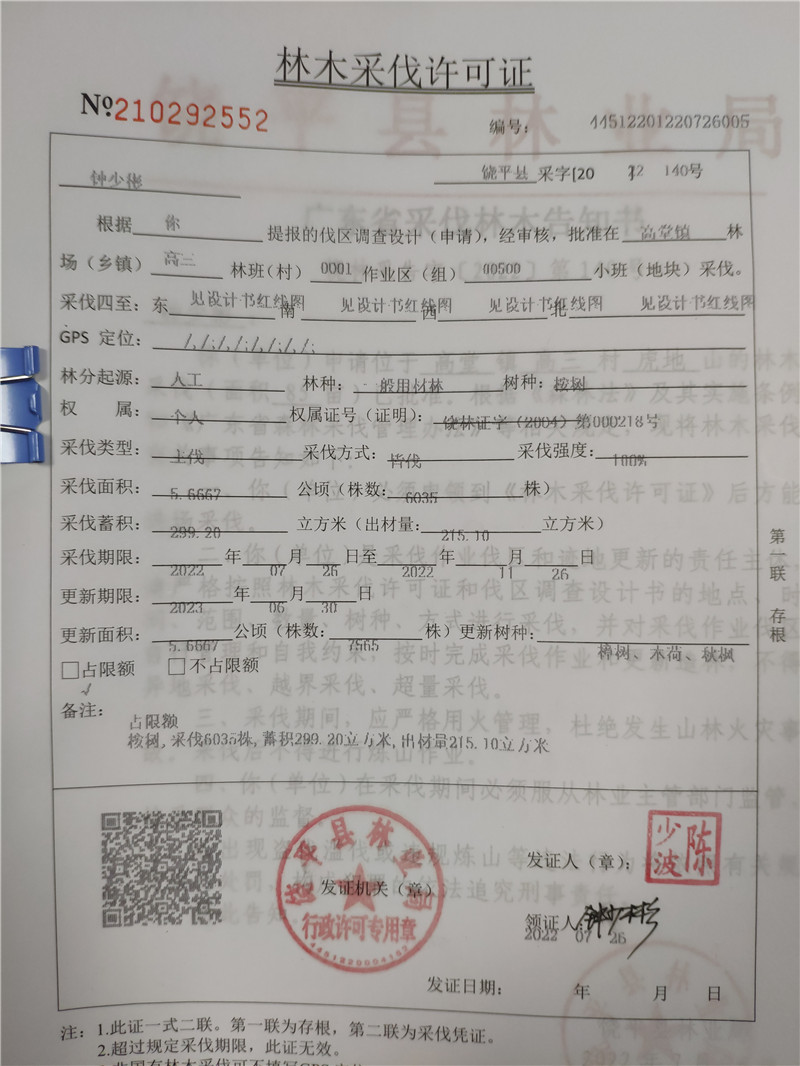 林木采伐许可证
№210292552
编号: 44512201220726005
钟少彬
饶平县 采字[20 22 140号
根据 你 提报的伐区调查设计(申请),经审核,批准在 高堂镇 林
场(乡镇) 高三 林班(村) 0001 作业区(组) 00500 小班(地块)采伐。
采伐四至: 东 见设计书红线图 南 见设计书红线图 西 见设计书红线图 北 见设计书红线图
GPS 定位: /,/,/,/,/,/,/,/,
林分起源: 人工 林种: 一般用材林 树种: 桉树
权 属: 个人 权属证号(证明): 饶林证字(2004)第000218号
采伐类型: 主伐 采伐方式: 皆伐 采伐强度: 100%
采伐面积: 5.6667 公顷(株数: 6035 株)
采伐蓄积: 299.20 立方米(出材量: 215.10 立方米)
采伐期限: 2022 年 07 月 26 日至 2022 年 11 月 26 日
更新期限: 2023 年 06 月 30 日
更新面积: 5.6667 公顷(株数: 7565 株)更新树种: 樟树、木荷、秋枫
□占限额 □不占限额
√
备注: 占限额
桉树,采伐6035株,蓄积299.20立方米,出材量215.10立方米
第一联 存根
饶平县林业局
行政许可专用章
发证机关(章)
发证人(章):
陈少波
领证人: 钟少彬
2022 07 26
发证日期: 年 月 日
注: 1.此证一式二联。第一联为存根,第二联为采伐凭证。
2.超过规定采伐期限,此证无效。